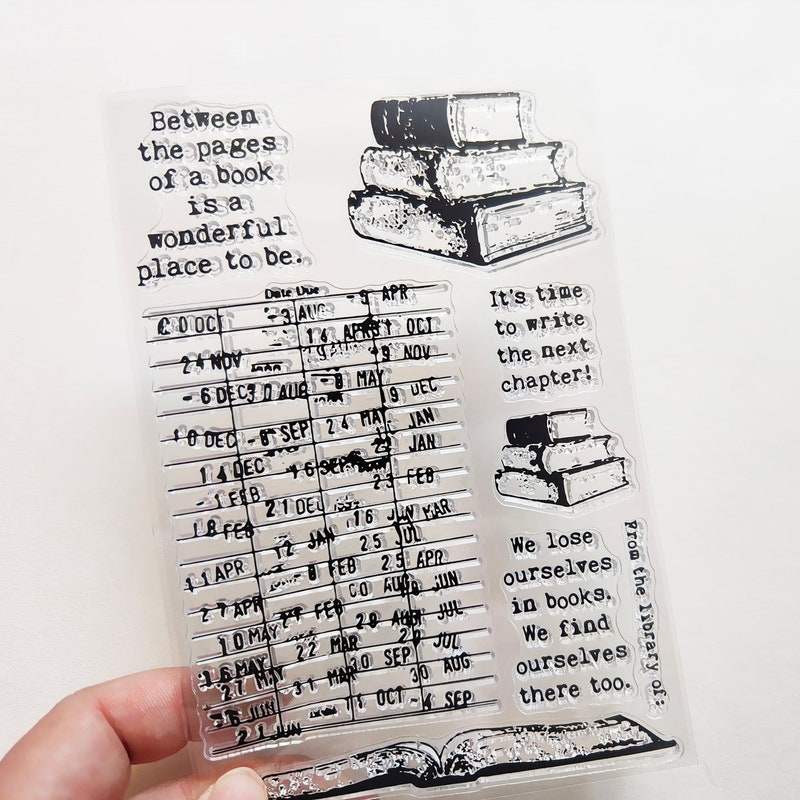 Between
the pages
of a book
is a
wonderful
place to be.
Date Due
-3 AUG
-9 APR
0 OCT
14 APR
OCT
24 NOV
9 NOV
-6 DEC
30 AUG
-8 MAY
9 DEC
10 DEC
-8 SEP
24 MAY
JAN
14 DEC
16 SEP
JAN
-1 FEB
23 FEB
18 FEB
21 DEC
16 JUN
MAR
12 JAN
25 JUL
11 APR
8 FEB
25 APR
27 APR
FEB
AUG
JUN
10 MAY
22 MAR
28 AUG
JUL
16 MAY
27 MAY
31 MAR
30 SEP
JUL
-6 JUN
11 OCT
30 AUG
21 JUN
-4 SEP
It's time
to write
the next
chapter!
We lose
ourselves
in books.
We find
ourselves
there too.
From the library of: